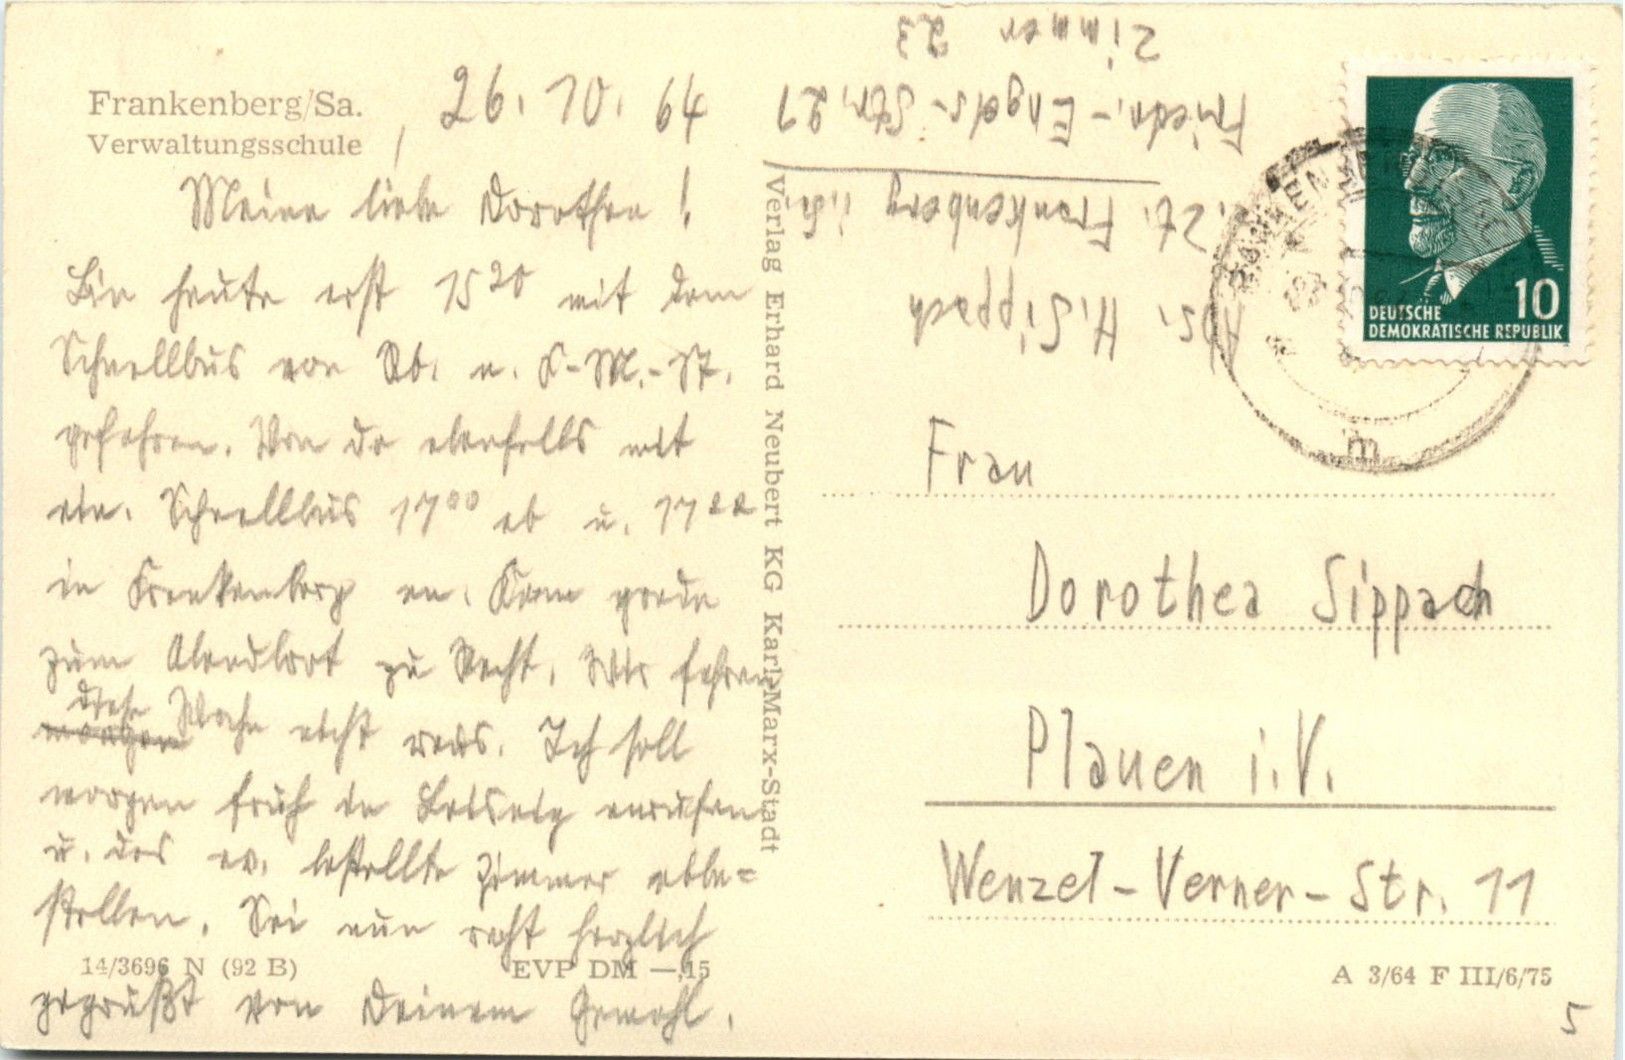 Frankenberg/Sa.
Verwaltungsschule
26. 10. 64
Meine liebe Dorothea!
Bin heute erst 15²⁰ mit dem
Schnellbus von Rb. n. K-M.-St.
gefahren. Von da ebenfalls mit
ein. Schnellbus 17⁰⁰ ab u. 17²²
in Frankenberg an. Kam grade
zum Abendbrot zu Recht. Wir fahren
diese Woche nicht raus. Ich soll
morgen früh in anrufen
u. das ev. bestellte Zimmer abbe=
stellen. Sei nun recht herzlich
gegrüßt von Deinem Gemahl.
14/3696 N (92 B)
EVP DM —,15
Verlag Erhard Neubert KG Karl-Marx-Stadt
Abs. H. Sippach
z. Zt. Frankenberg i. Sa.
Friedr.-Engels-Str. 21
Zimmer 23
DEUTSCHE
DEMOKRATISCHE REPUBLIK
10
m
Frau
Dorothea Sippach
Plauen i. V.
Wenzel-Verner-Str. 11
A 3/64 F III/6/75
5